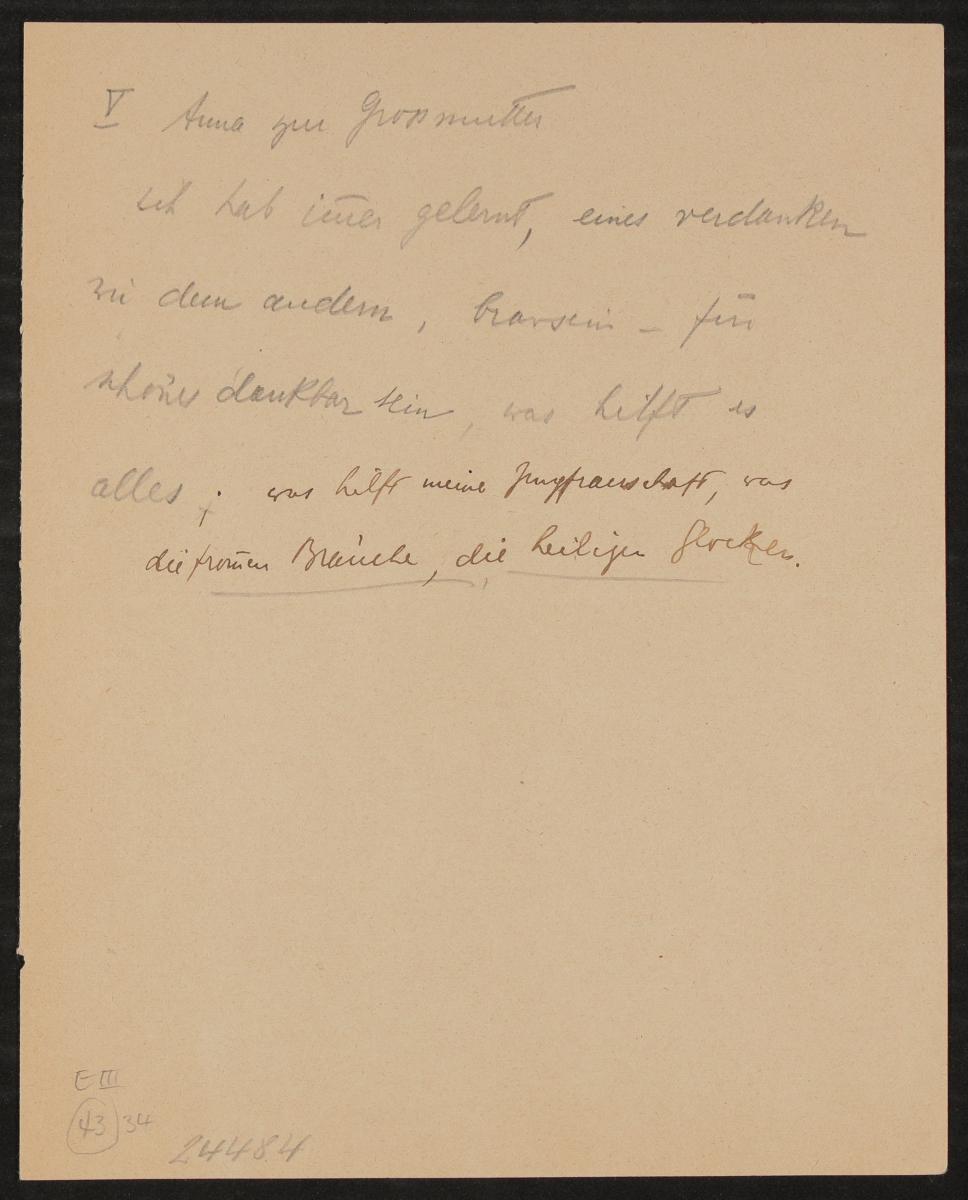 V Anna zur Grossmutter
ich hab im̄er gelernt, eines verdanken
wir dem andern, bravsein – für
schönes dankbar sein, was hilft es
alles, was hilft meine Jungfrauschaft, was
die from̄en Bräuche, die heiligen Glocken.
E III
43 34
24484